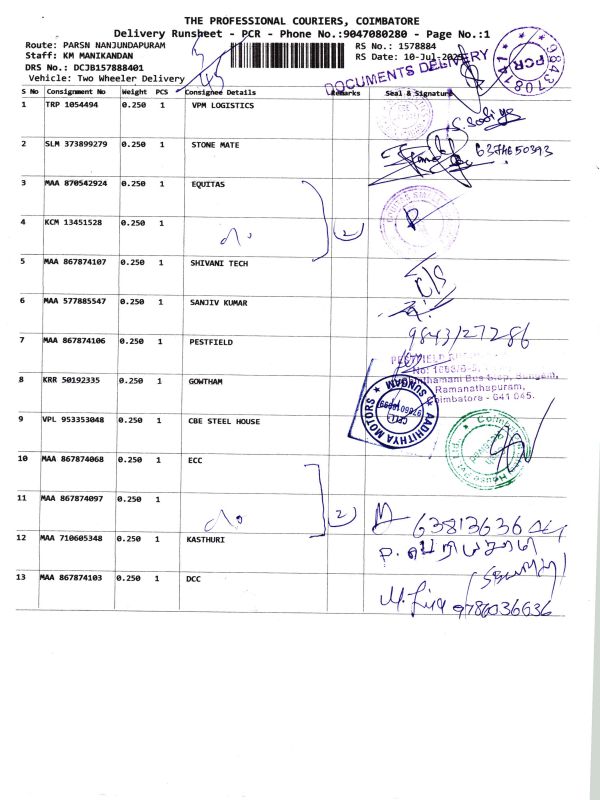 THE PROFESSIONAL COURIERS, COIMBATORE
Delivery Runsheet - PCR - Phone No.:9047080280 - Page No.:1
Route: PARSN NANJUNDAPURAM
RS No.: 1578884
Staff: KM MANIKANDAN
RS Date: 10-Jul-
DRS No.: DCJB157888401
Vehicle: Two Wheeler Delivery
DOCUMENTS DELIVERY
PCR
S No Consignment No Weight PCS Consignee Details Remarks Seal & Signature
1 TRP 1054494 0.250 1 VPM LOGISTICS
2 SLM 373899279 0.250 1 STONE MATE
3 MAA 870542924 0.250 1 EQUITAS
4 KCM 13451528 0.250 1
2
5 MAA 867874107 0.250 1 SHIVANI TECH
6 MAA 577885547 0.250 1 SANJIV KUMAR
7 MAA 867874106 0.250 1 PESTFIELD
9843127286
8 KRR 50192335 0.250 1 GOWTHAM
Bus Stop, Sungam,
Ramanathapuram,
Coimbatore - 641 045.
AADHITHYA MOTORS
SUNGAM
9 VPL 953353048 0.250 1 CBE STEEL HOUSE
10 MAA 867874068 0.250 1 ECC
11 MAA 867874097 0.250 1
2
12 MAA 710605348 0.250 1 KASTHURI
13 MAA 867874103 0.250 1 DCC
9786036636